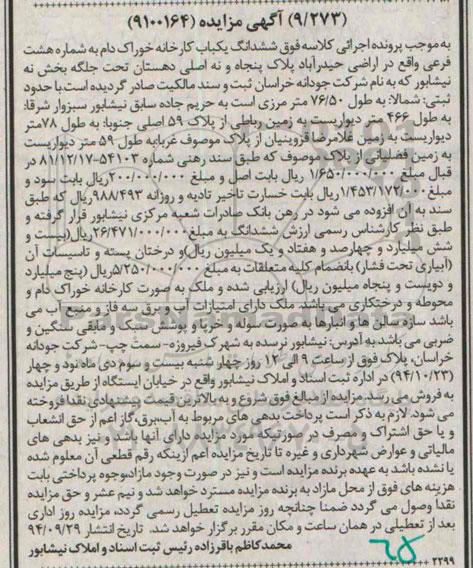 (۹/۲۷۳) آگهی مزایده (۹۱۰۰۱۶۴)
به موجب پرونده اجرائی کلاسه فوق ششدانگ یکباب کارخانه خوراک دام به شماره هشت
فرعی واقع در اراضی حیدرآباد پلاک پنجاه و نه اصلی دهستان تحت جلگه بخش نه
نیشابور که به نام شرکت جودانه خراسان ثبت و سند مالکیت صادر گردیده است با حدود
ثبتی: شمالا: به طول ۷۶/۵۰ متر مرزی است به حریم جاده سابق نیشابور سبزوار شرقا:
به طول ۴۶۶ متر دیواریست به زمین رباطی از پلاک ۵۹ اصلی جنوبا: به طول ۷۸متر
دیواریست به زمین غلامرضا قزوینیان از پلاک موصوف غربا:به طول ۵۹ متر دیواریست
به زمین فضلیانی از پلاک موصوف که طبق سند رهنی شماره ۵۴۱۰۳-۸۱/۱۲/۱۷ در
قبال مبلغ ۱/۶۵۰/۰۰۰/۰۰۰ ریال بابت اصل و مبلغ ۲۰۰/۰۰۰/۰۰۰ریال بابت سود و
مبلغ ۱/۴۵۳/۱۷۲/۰۵۰ریال بابت خسارت تاخیر تادیه و روزانه ۹۸۸/۴۹۳ریال که طبق
سند به آن افزوده می شود در رهن بانک صادرات شعبه مرکزی نیشابور قرار گرفته و
طبق نظر کارشناس رسمی ارزش ششدانگ به مبلغ۲۶/۴۷۱/۰۰۰/۰۰۰ریال(بیست و
شش میلیارد و چهارصد و هفتاد و یک میلیون ریال)و درختان پسته و تاسیسات آن
(آبیاری تحت فشار) بانضمام کلیه متعلقات به مبلغ ۵/۲۵۰/۰۰۰/۰۰۰ریال (پنج میلیارد
و دویست و پنجاه میلیون ریال) ارزیابی شده و ملک به صورت کارخانه خوراک دام و
محوطه و درختکاری می باشد. ملک دارای امتیازات آب، برق سه فاز و منبع آب می
باشد سازه سالن ها و انبارها به صورت سوله و خرپا و پوشش سبک و مابقی سنگین و
ضربی می باشد.به آدرس: نیشابور نرسیده به شهرک فیروزه- سمت چپ-شرکت جودانه
خراسان، پلاک فوق از ساعت ۹ الی ۱۲ روز چهار شنبه بیست و سوم دی ماه نود و چهار
(۹۴/۱۰/۲۳) در اداره ثبت اسناد و املاک نیشابور واقع در خیابان ایستگاه از طریق مزایده
به فروش می رسد. مزایده از مبالغ فوق شروع و به بالاترین قیمت پیشنهادی نقدا فروخته
می شود. لازم به ذکر است پرداخت بدهی های مربوط به آب،برق،گاز اعم از حق انشعاب
و یا حق اشتراک و مصرف در صورتیکه مورد مزایده دارای آنها باشد و نیز بدهی های
مالیاتی و عوارض شهرداری و غیره تا تاریخ مزایده اعم ازینکه رقم قطعی آن معلوم شده
یا نشده باشد به عهده برنده مزایده است و نیز در صورت وجود مازاد،وجوه پرداختی بابت
هزینه های فوق از محل مازاد به برنده مزایده مسترد خواهد شد و نیم عشر و حق مزایده
نقدا وصول می گردد ضمنا چنانچه روز مزایده تعطیل رسمی گردد، مزایده روز اداری
بعد از تعطیلی در همان ساعت و مکان مقرر برگزار خواهد شد. تاریخ انتشار ۹۴/۰۹/۲۹
محمدکاظم باقرزاده رئیس ثبت اسناد و املاک نیشابور
۲۲۹۹